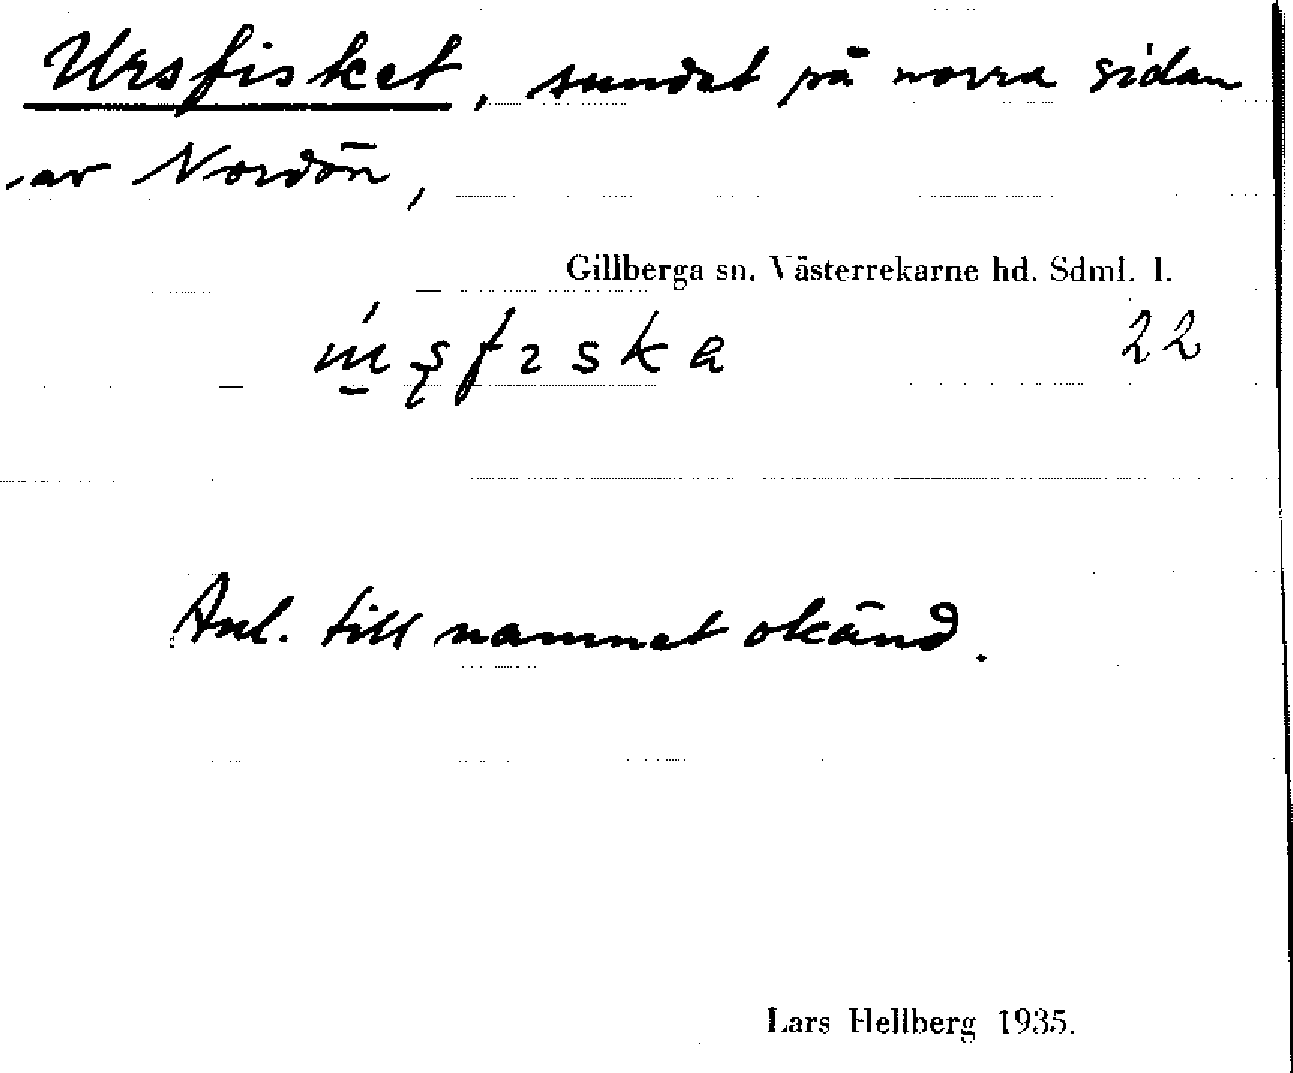 Ursfisket, sundet på norra sidan
av Nordön,
Gillberga sn. Västerrekarne hd. Sdml. l.
22
Anl. till namnet okänd.
Lars Hellberg 1935.